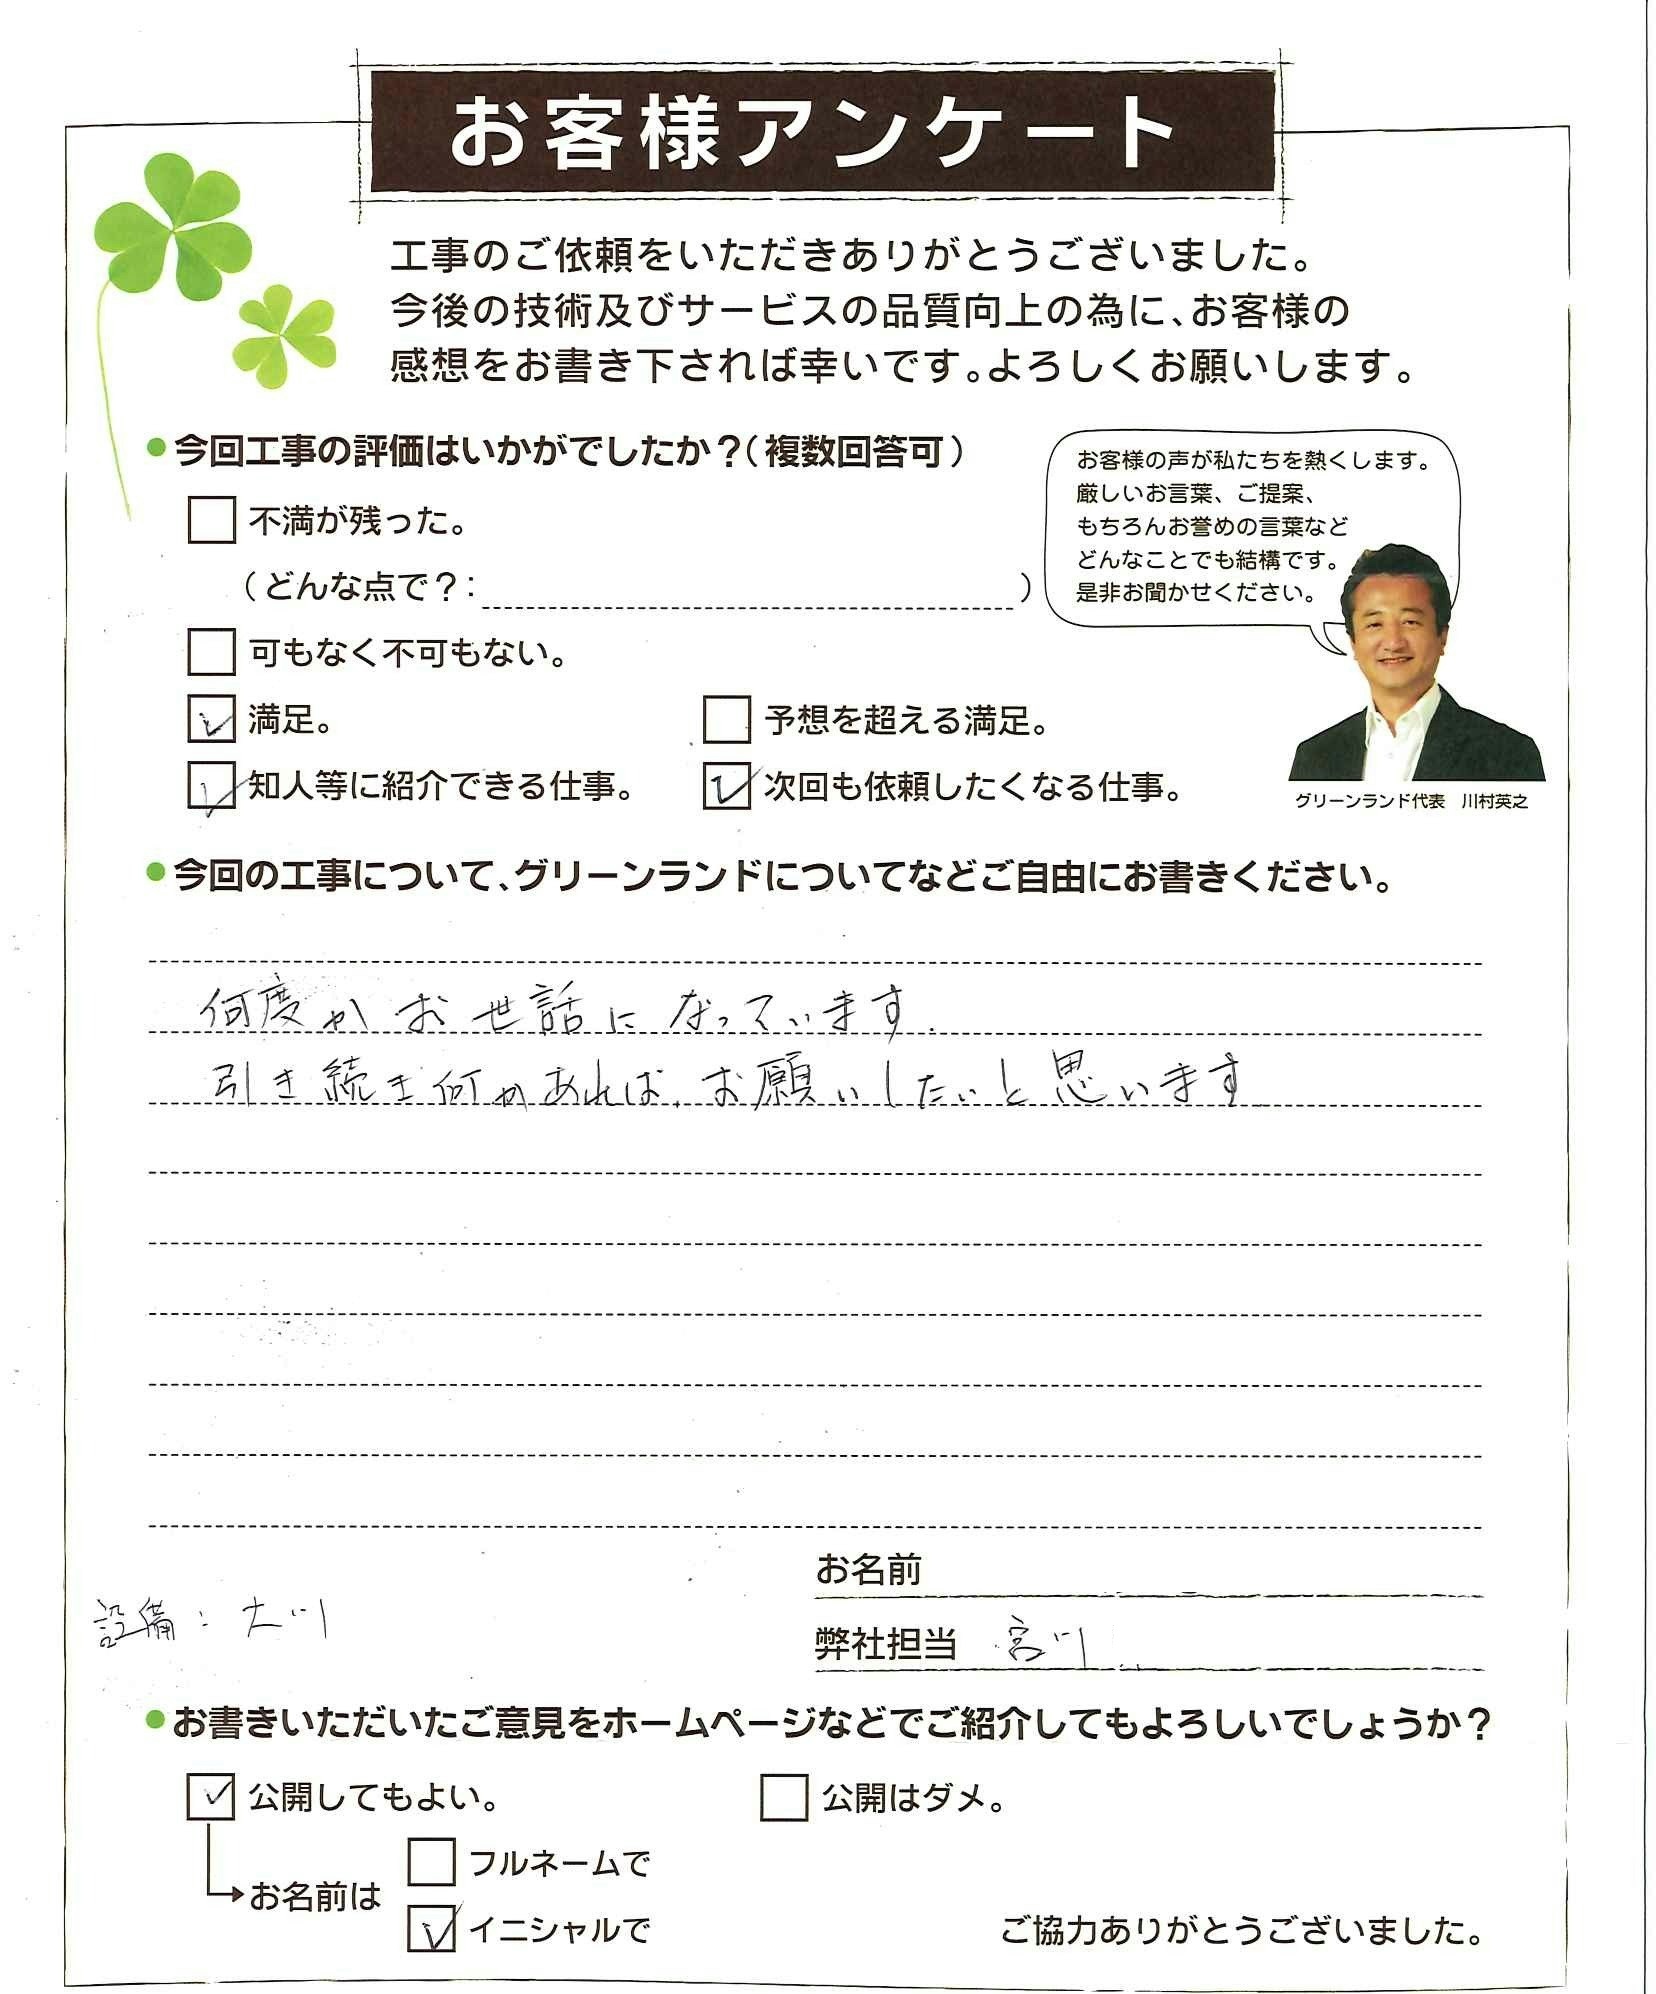 お客様アンケート
工事のご依頼をいただきありがとうございました。
今後の技術及びサービスの品質向上の為に、お客様の
感想をお書き下されば幸いです。よろしくお願いします。
●今回工事の評価はいかがでしたか？（複数回答可）
お客様の声が私たちを熱くします。
厳しいお言葉、ご提案、
もちろんお誉めの言葉など
どんなことでも結構です。
是非お聞かせください。
グリーンランド代表 川村英之
不満が残った。
（どんな点で？： ）
可もなく不可もない。
満足。
予想を超える満足。
知人等に紹介できる仕事。
次回も依頼したくなる仕事。
●今回の工事について、グリーンランドについてなどご自由にお書きください。
何度かお世話になっています.
引き続き何かあれば、お願いしたいと思います
お名前
設備：大川
弊社担当 宮川
●お書きいただいたご意見をホームページなどでご紹介してもよろしいでしょうか？
公開してもよい。
公開はダメ。
お名前は
フルネームで
イニシャルで
ご協力ありがとうございました。